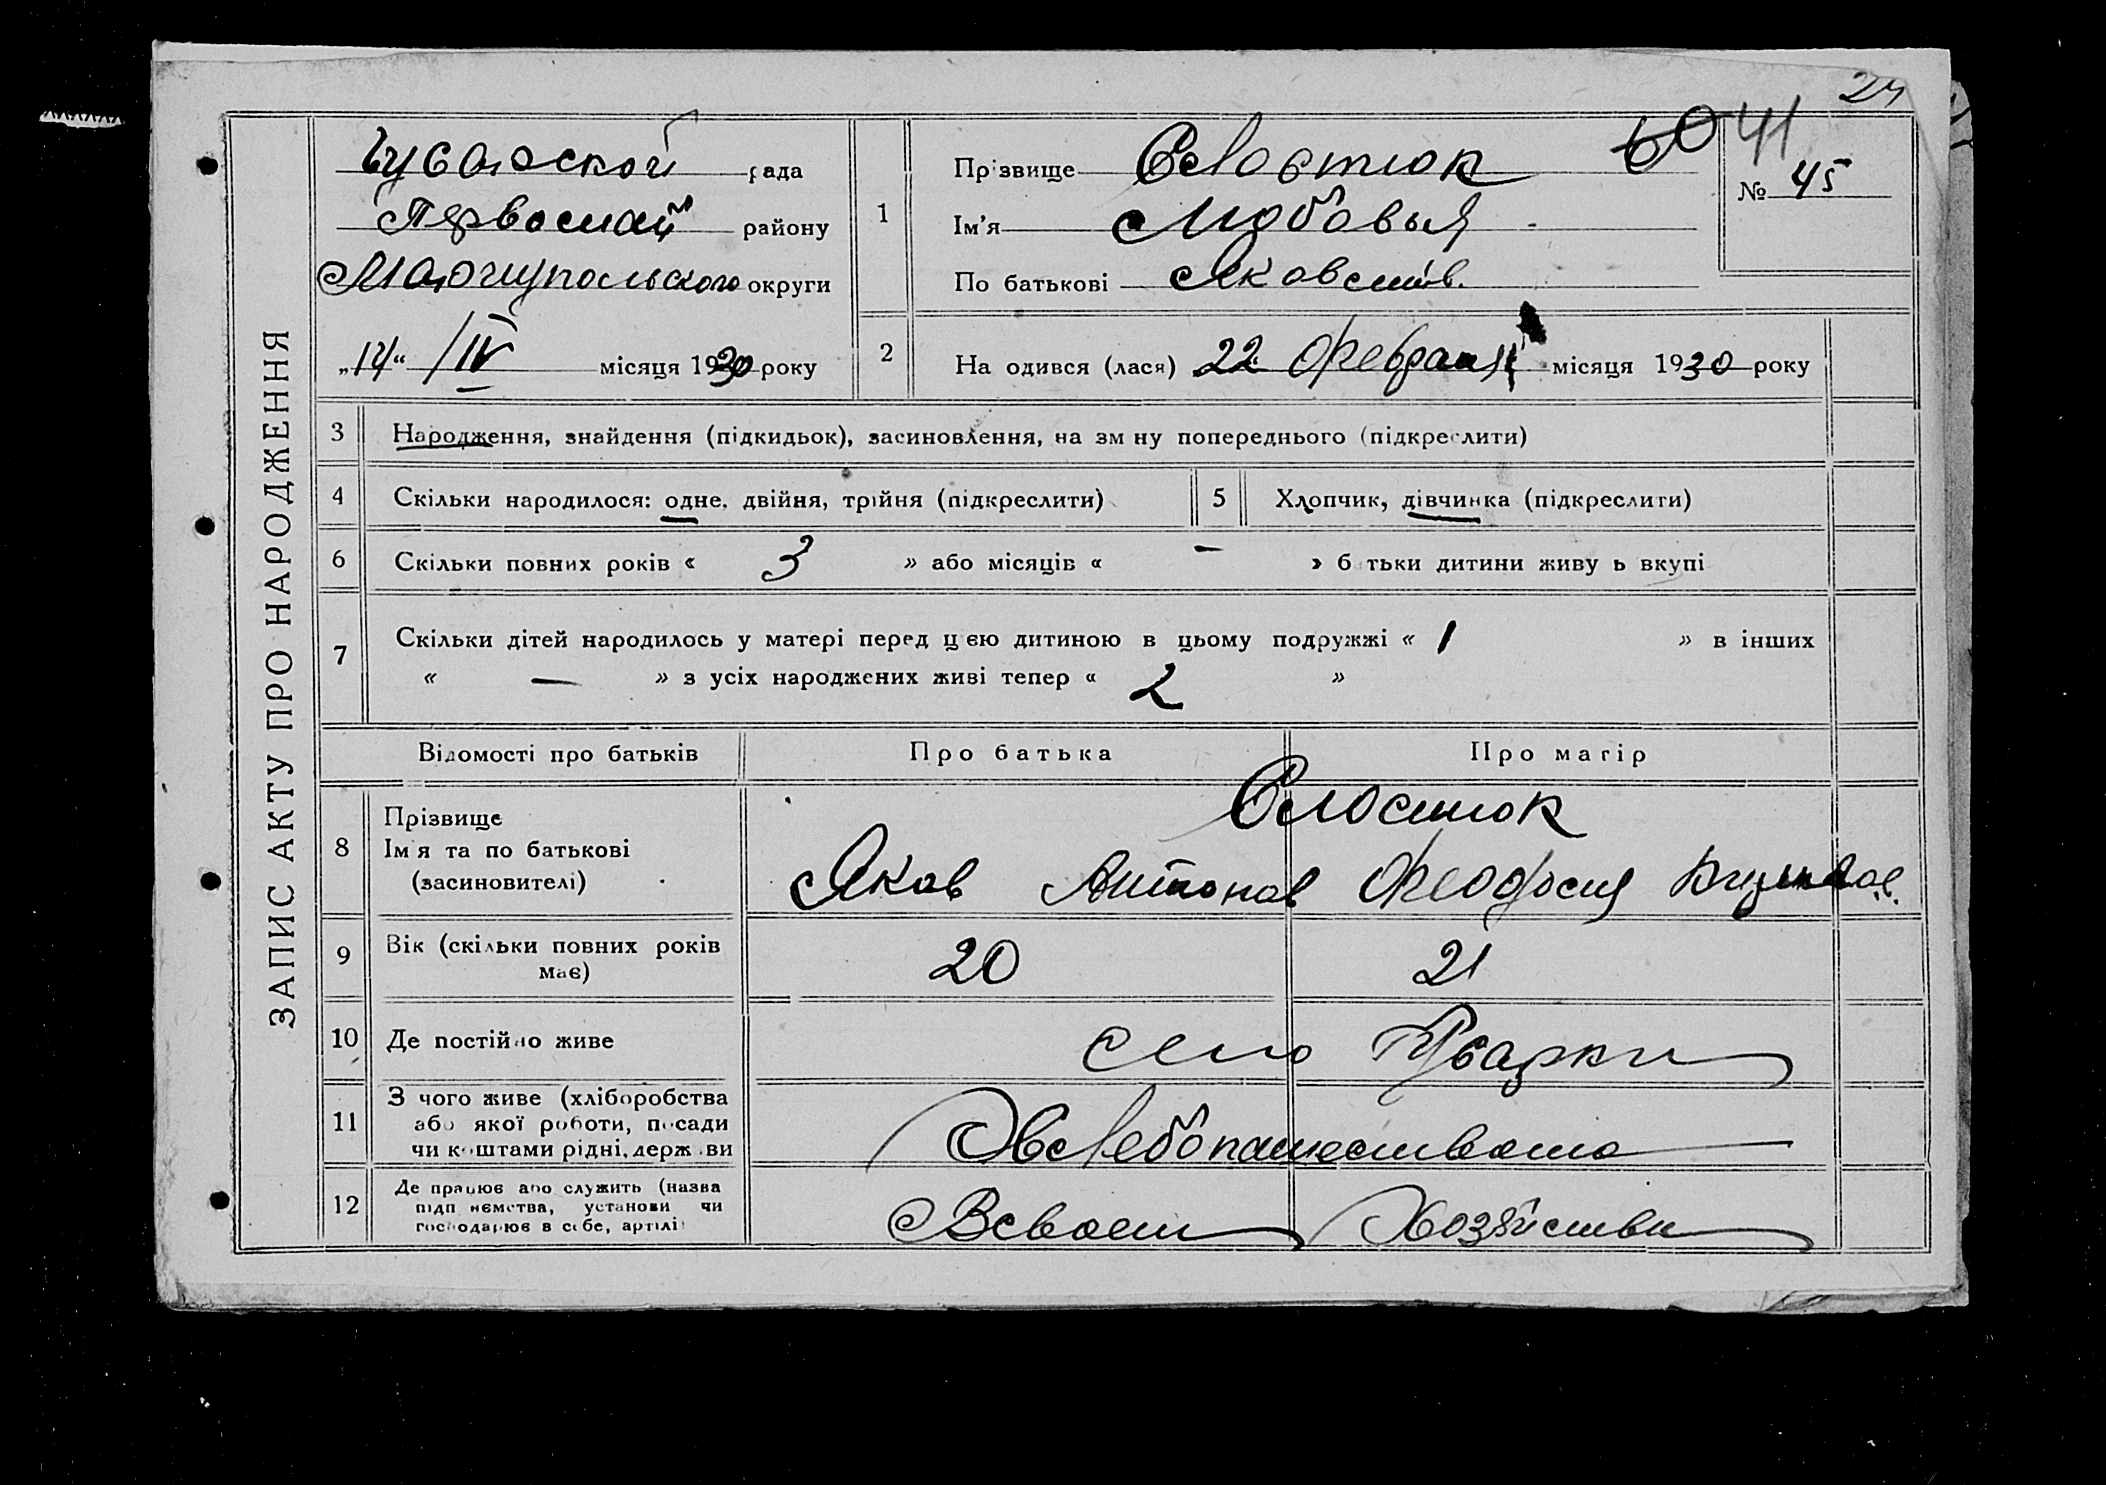 24
60 41
№ 45
ЗАПИС АКТУ ПРО НАРОДЖЕННЯ
рада
Первомай району
Мариупольского округи
„14“ /IV місяця 1930 року
1
Прізвище
Ім'я Любовья
По батькові Яковлив.
2 На одився (лася) 22 Февраля місяця 1930 року
3 Народження, знайдення (підкидьок), засиновлення, на зм ну попереднього (підкреслити)
4 Скільки народилося: одне, двійня, трійня (підкреслити)
5 Хлопчик, дівчинка (підкреслити)
6 Скільки повних років « 3 » або місяців « — » б тьки дитини живу ь вкупі
7 Скільки дітей народилось у матері перед цією дитиною в цьому подружжі « 1 » в інших
« — » з усіх народжених живі тепер « 2 »
Відомості про батьків Про батька Про матір
8 Прізвище
Ім'я та по батькові
(засиновителі)
Яков Антонов Феодосия
9 Вік (скільки повних років
має)
20 21
10 Де постійно живе село
11 З чого живе (хліборобства
або якої роботи, посади
чи коштами рідні, держави
Хлебопашеством
12 Де працює або служить (назва
підп иємства, установи чи
господарює в себе, артілі)
В своем Хозяйстви